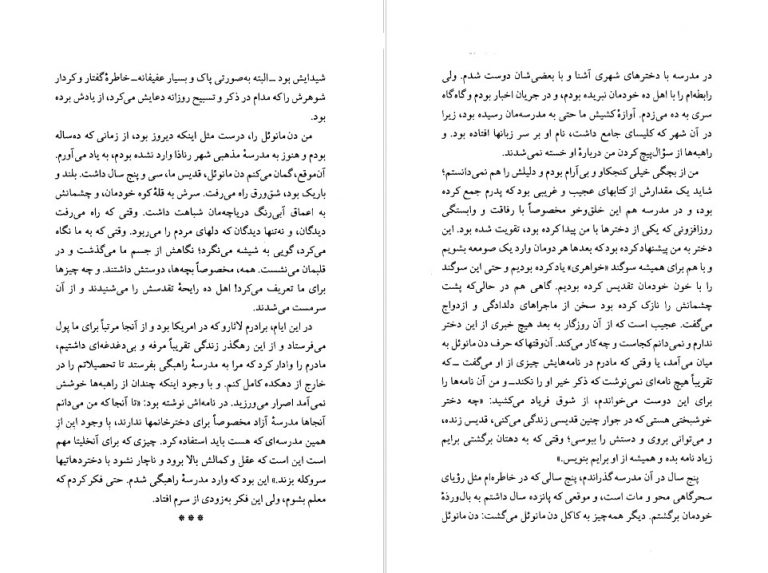 شیدایش بود ــ البته به‌صورتی پاک و بسیار عفیفانه ــ خاطرهٔ گفتار و کردار
شوهرش را که مدام در ذکر و تسبیح روزانه دعایش می‌کرد، از یادش برده
بود.
من دن مانوئل را، درست مثل اینکه دیروز بود، از زمانی که ده‌ساله
بودم و هنوز به مدرسهٔ مذهبی شهر رناذا وارد نشده بودم، به یاد می‌آورم.
آن‌موقع، گمان می‌کنم دن مانوئل، قدیس ما، سی و پنج سال داشت. بلند و
باریک بود، شق‌ورق راه می‌رفت. سرش به قلهٔ کوه خودمان، و چشمانش
به اعماق آبی‌رنگ دریاچه‌مان شباهت داشت. وقتی که راه می‌رفت
دیدگان، و نه‌تنها دیدگان که دلهای مردم را می‌ربود. وقتی که به ما نگاه
می‌کرد، گویی به شیشه می‌نگرد؛ نگاهش از جسم ما می‌گذشت و در
قلبمان می‌نشست. همه، مخصوصاً بچه‌ها، دوستش داشتند. و چه چیزها
برای ما تعریف می‌کرد! اهل ده رایحهٔ تقدسش را می‌شنیدند و از آن
سرمست می‌شدند.
در این ایام، برادرم لاثارو که در امریکا بود و از آنجا مرتباً برای ما پول
می‌فرستاد و از این رهگذر زندگی تقریباً مرفه و بی‌دغدغه‌ای داشتیم،
مادرم را وادار کرد که مرا به مدرسهٔ راهبگی بفرستد تا تحصیلاتم را در
خارج از دهکده کامل کنم. و با وجود اینکه چندان از راهبه‌ها خوشش
نمی‌آمد اصرار می‌ورزید. در نامه‌اش نوشته بود: «تا آنجا که من می‌دانم
آنجاها مدرسهٔ آزاد مخصوصاً برای دخترخانمها ندارند، با وجود این از
همین مدرسه‌ای که هست باید استفاده کرد. چیزی که برای آنخلیتا مهم
است این است که عقل و کمالش بالا برود و ناچار نشود با دختردهاتیها
سروکله بزند.» این بود که وارد مدرسهٔ راهبگی شدم. حتی فکر کردم که
معلم بشوم، ولی این فکر به‌زودی از سرم افتاد.
***
در مدرسه با دخترهای شهری آشنا و با بعضی‌شان دوست شدم. ولی
رابطه‌ام را با اهل ده خودمان نبریده بودم، و در جریان اخبار بودم و گاه‌گاه
سری به ده می‌زدم. آوازهٔ کشیش ما حتی به مدرسه‌مان رسیده بود، زیرا
در آن شهر که کلیسای جامع داشت، نام او بر سر زبانها افتاده بود. و
راهبه‌ها از سؤال‌پیچ کردن من دربارهٔ او خسته نمی‌شدند.
من از بچگی خیلی کنجکاو و بی‌آرام بودم و دلیلش را هم نمی‌دانستم؛
شاید یک مقدارش از کتابهای عجیب و غریبی بود که پدرم جمع کرده
بود، و در مدرسه هم این خلق‌وخو مخصوصاً با رفاقت و وابستگی
روزافزونی که یکی از دخترها با من پیدا کرده بود، تقویت شده بود. این
دختر به من پیشنهاد کرده بود که بعدها هر دومان وارد یک صومعه بشویم
و با هم برای همیشه سوگند «خواهری» یاد کرده بودیم و حتی این سوگند
را با خون خودمان تقدیس کرده بودیم. گاهی هم در حالی‌که پشت
چشمانش را نازک کرده بود سخن از ماجراهای دلدادگی و ازدواج
می‌گفت. عجیب است که از آن روزگار به بعد هیچ خبری از این دختر
ندارم و نمی‌دانم کجاست و چه‌کار می‌کند. آن‌وقتها که حرف دن مانوئل به
میان می‌آمد، یا وقتی که مادرم در نامه‌هایش چیزی از او می‌گفت ــ که
تقریباً هیچ نامه‌ای نمی‌نوشت که ذکر خیر او را نکند ــ و من آن نامه‌ها را
برای این دوست می‌خواندم، از شوق فریاد می‌کشید: «چه دختر
خوشبختی هستی که در جوار چنین قدیسی زندگی می‌کنی، قدیس زنده،
و می‌توانی بروی و دستش را ببوسی؛ وقتی که به دهتان برگشتی برایم
زیاد نامه بده و همیشه از او برایم بنویس.»
پنج سال در آن مدرسه گذراندم، پنج سالی که در خاطره‌ام مثل رؤیای
سحرگاهی محو و مات است، و موقعی که پانزده سال داشتم به بال‌وردهٔ
خودمان برگشتم. دیگر همه‌چیز به کاکل دن مانوئل می‌گشت: دن مانوئل